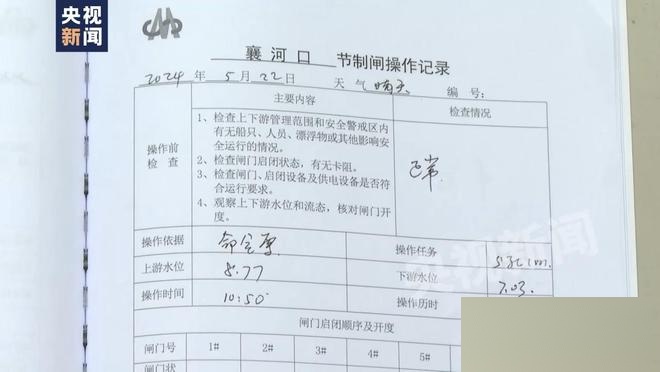 央视
新闻
襄河口 节制闸操作记录
2024 年 5 月 22 日 天气 晴天 编号:
主要内容 检查情况
操作前
检 查
1、检查上下游管理范围和安全警戒区内
有无船只、人员、漂浮物或其他影响安
全运行的情况。
2、检查闸门启闭状态,有无卡阻。
3、检查闸门、启闭设备及供电设备是否符
合运行要求。
4、观察上下游水位和流态,核对闸门开
度。
正常
操作依据 操作任务
上游水位 8.77 下游水位 7.03.
操作时间 10:50 操作历时
闸门启闭顺序及开度
闸门号 1# 2# 3# 4# 5#
闸门状
央视新闻